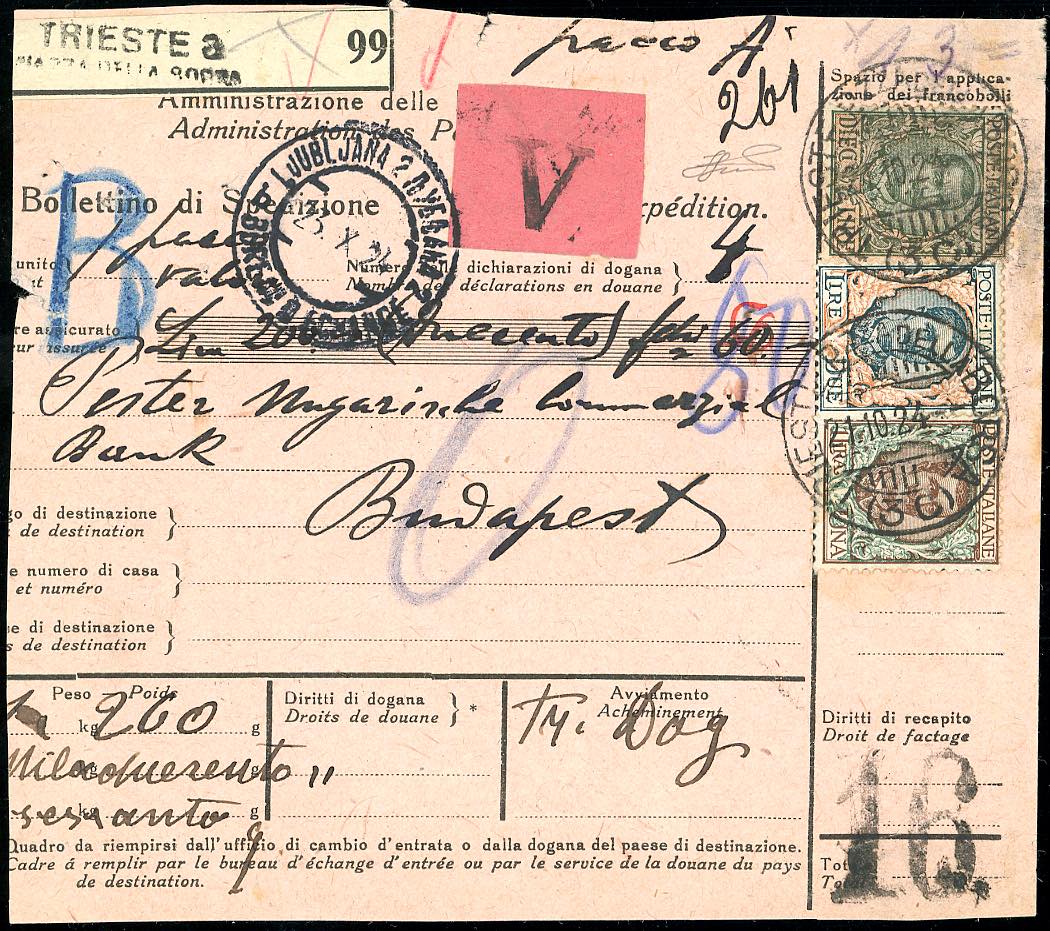 TRIESTE a
99
PIAZZA DELLA BORSA
pacco A
261
Spazio per l'applica-
zione dei francobolli
Amministrazione delle
Administration des P
V
Bollettino di Spedizione
xpédition.
LJUBLJANA 2
X
DIECI LIRE
POSTE·ITALIANE
B
valo
Numero delle dichiarazioni di dogana
Nombre des déclarations en douane
4
re assicurato
eur assurée
Lire 200 (duecento) fchi 60.
50
LIRE DUE
POSTE·ITALIANE
Pester Ungarische Commerzial
Bank
21.10.24
LIRA UNA
POSTE ITALIANE
Budapest
go di destinazione
x de destination
e numero di casa
et numéro
se di destinazione
s de destination
Peso Poids
kg 260 g
kg
kg g
Diritti di dogana
Droits de douane
*
Avviamento
Acheminement
Diritti di recapito
Droit de factage
16
Tot
To
Quadro da riempirsi dall'ufficio di cambio d'entrata o dalla dogana del paese di destinazione.
Cadre á remplir par le bureau d'échange d'entrée ou par le service de la douane du pays
de destination.